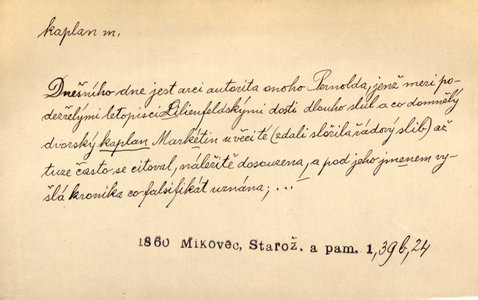 kaplan m.
Dnešního dne jest arci autorita onoho Pernolda, jenž mezi po-
dezřelými letopisci Lilienfeldskými dosti dlouho slul a co domnělý
dvorský kaplan Markétin u věci té (zdali složila řádový slib) až
tuze často se citoval, náležitě dosouzena, a pod jeho jmenem vy-
šlá kronika co falsifikát uznána; ...
1860 Mikovec, Starož. a pam. 1, 39 b, 24